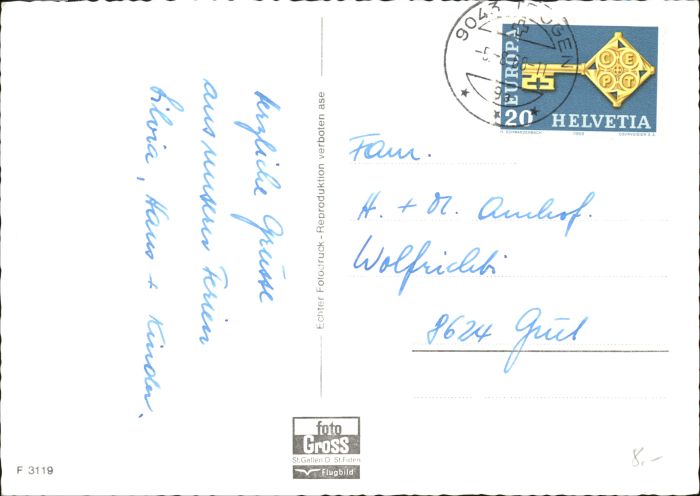 herzliche Grüsse
aus unseren Ferien
Silvia, Hans + Kinder.
Echter Fotodruck - Reproduktion verboten ase
9043 TROGEN
EUROPA
CEPT
20 HELVETIA
1968
Fam.
H. + M. Amhof.
8624 Grüt
foto
Gross
St.Gallen O St.Fiden
Flugbild
F 3119
8.-